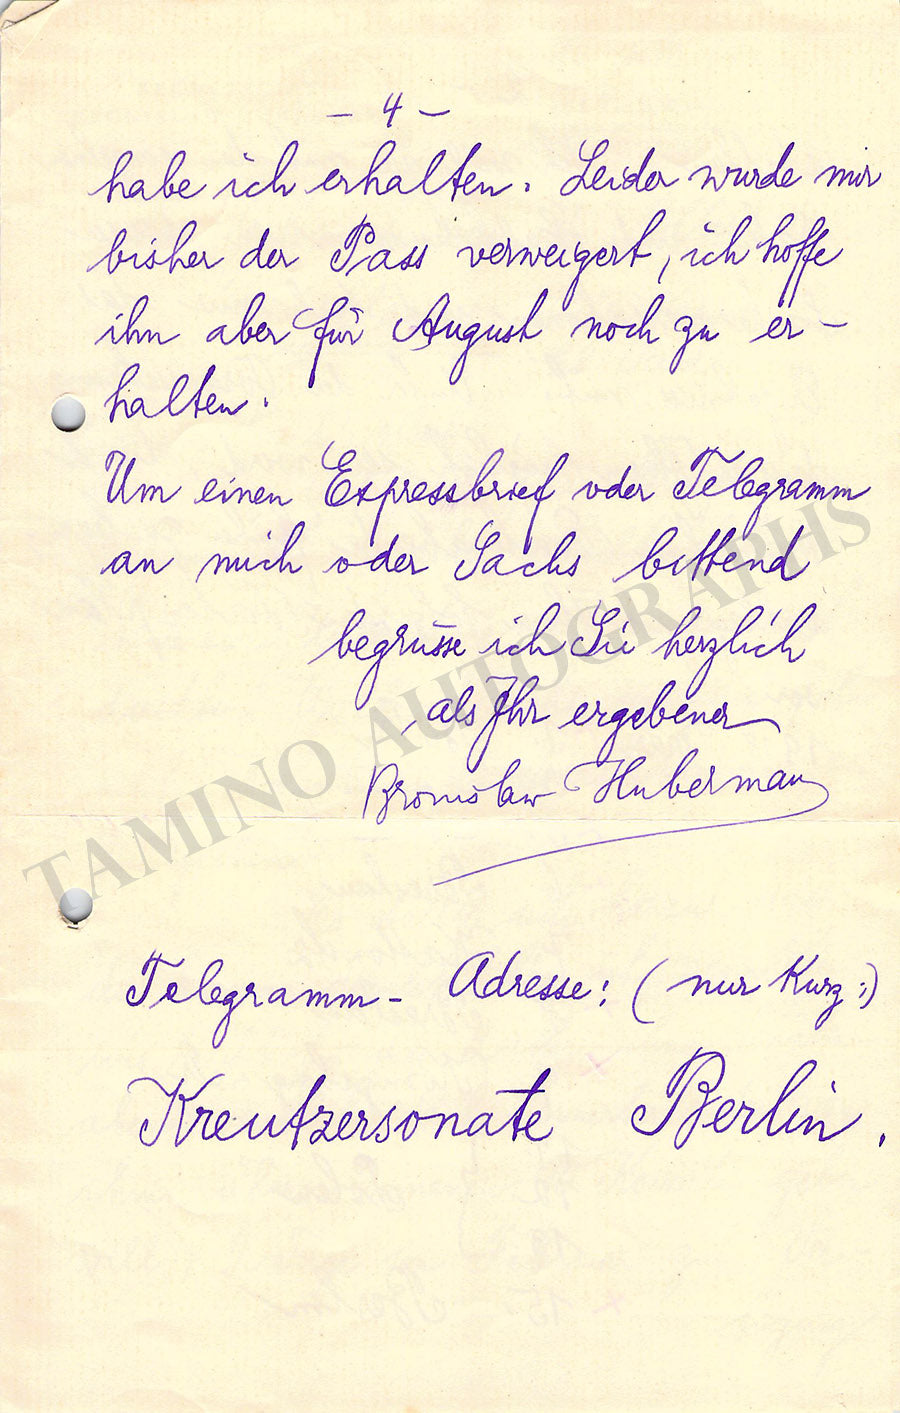 – 4 –
habe ich erhalten. Leider wurde mir
bisher der Pass verweigert, ich hoffe
ihn aber für August noch zu er-
halten.
Um einen Expressbrief oder Telegramm
an mich oder Sachs bittend
begrüsse ich Sie herzlich
als Ihr ergebener
Bronislaw Huberman
Telegramm - Adresse: (nur Kurz:)
Kreutzersonate Berlin.
TAMINO AUTOGRAPHS